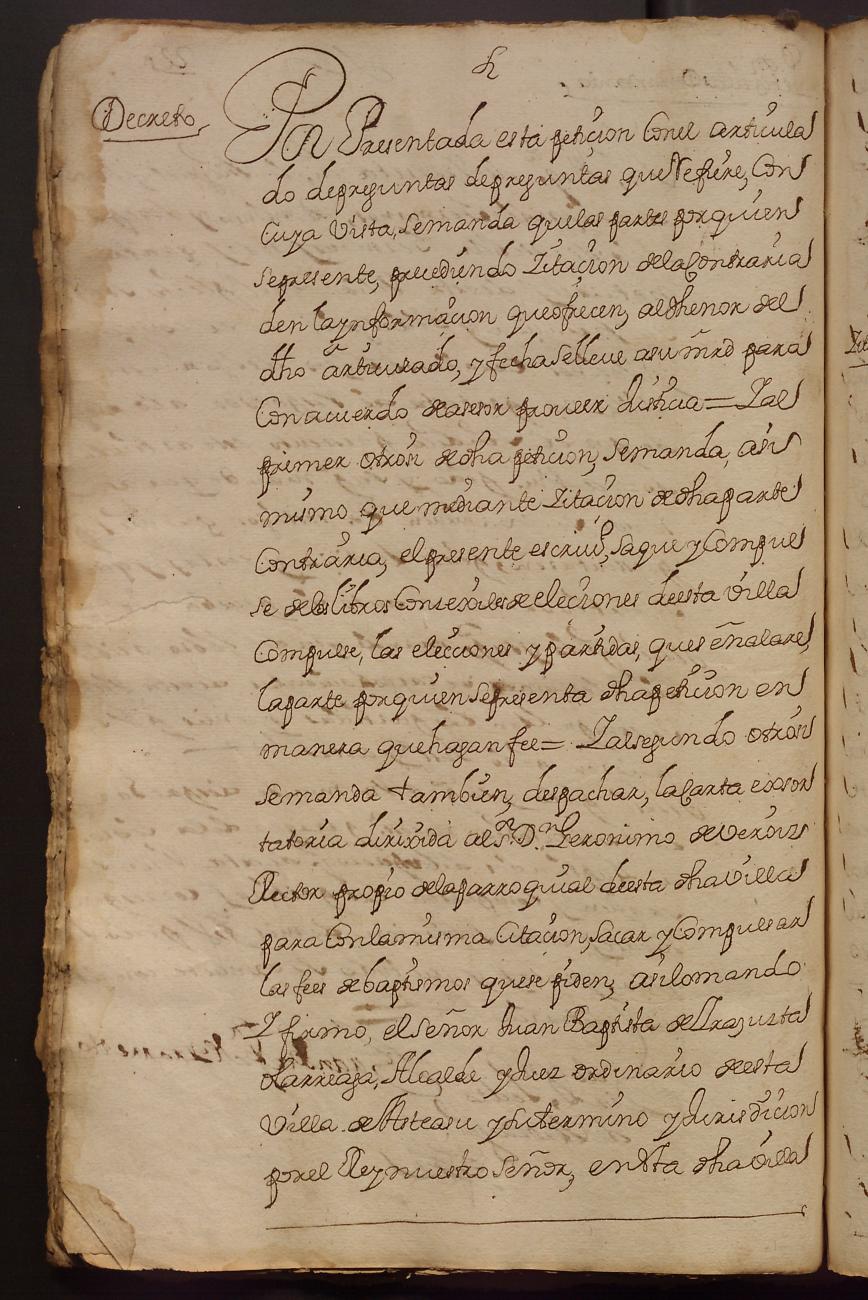 Decreto,
Por Presentada esta peticion Conel articula
do depreguntas depreguntas que Refiere, Con
Cuya Vista, Semanda quelas partes por quien
Sepresente, precediendo Zitacion delaContraria
den laynformacion queofrecen, althenor del
dho articulado, yfecha Selleve asu mrd para
Con acuerdo deasesor proveer Justicia = Yal
primer otrosi dedha peticion, Semanda, asi
mismo que mediante Zitacion dedha parte
Contraria, el presente escrivº, Saque y Compul
se delos libros Concexiles de eleciones deesta Villa
Compulse, las elecciones y partidas, que señalare,
laparte por quien Sepresenta dha peticion en
manera que hagan fee = Yalsegundo otrosi
Semanda tambien, despachar, laCarta exsor
tatoria dirixida al Sr. Dn. Geronimo de
Rector propio delaparroquial deesta dha Villa
para Conlamisma Citacion, Sacar y Compulsar
las fees debaptismos que se piden, asilomando
Y firmo, el Señor Juan Baptista de
Larreaga, Alcalde yJuez ordinario deesta
Villa de Asteasu ysu termino yJurisdicion
por el Rey nuestro Señor, en dha Villa